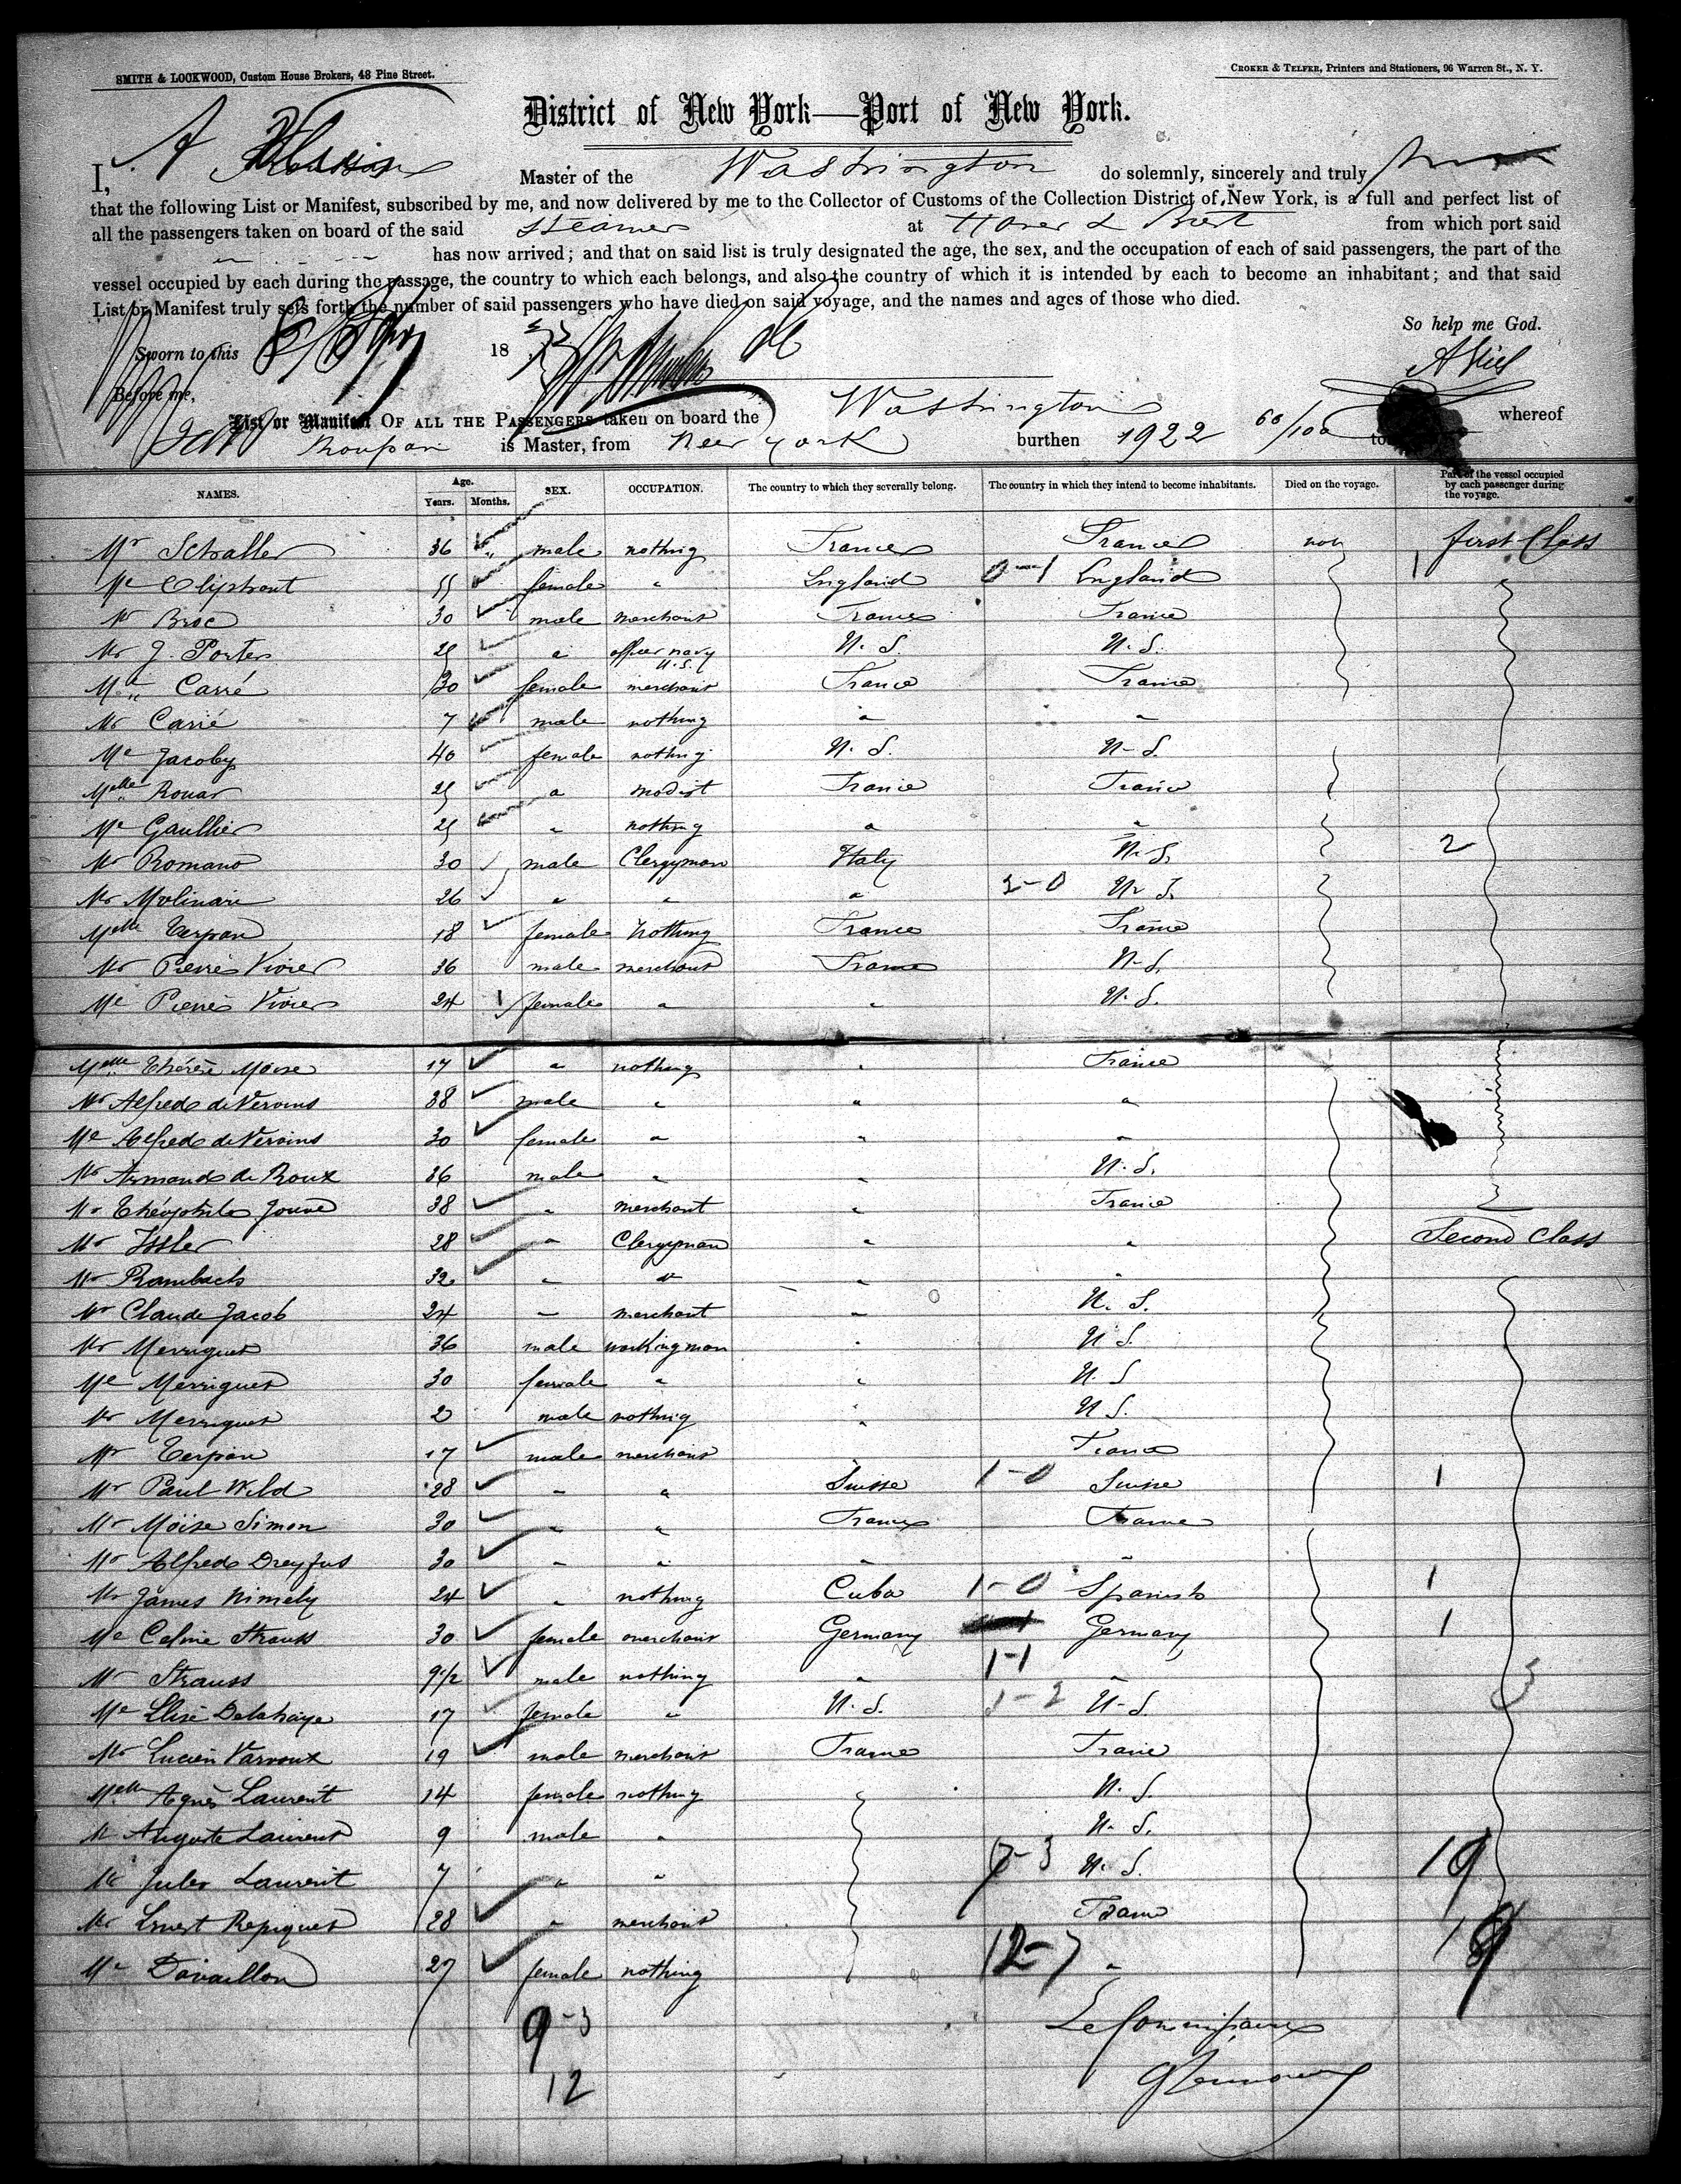 SMITH & LOCKWOOD, Custom House Brokers, 48 Pine Street.
CROKER & TELFER, Printers and Stationers, 96 Warren St., N. Y.
District of New York—Port of New York.
I, A Master of the Washington do solemnly, sincerely and truly
that the following List or Manifest, subscribed by me, and now delivered by me to the Collector of Customs of the Collection District of New York, is a full and perfect list of
all the passengers taken on board of the said Steamer at from which port said
has now arrived; and that on said list is truly designated the age, the sex, and the occupation of each of said passengers, the part of the
vessel occupied by each during the passage, the country to which each belongs, and also the country of which it is intended by each to become an inhabitant; and that said
List or Manifest truly sets forth the number of said passengers who have died on said voyage, and the names and ages of those who died.
So help me God.
Sworn to this 18
Before me,
List or Manifest OF ALL THE PASSENGERS taken on board the Washington whereof
is Master, from New york burthen 1922 60/100
NAMES. Age. Years. Months. SEX. OCCUPATION. The country to which they severally belong. The country in which they intend to become inhabitants. Died on the voyage. Part of the vessel occupied by each passenger during the voyage.
Mr Schaller 36 " male nothing France France non first Class
Me Oliphant 55 female " England 0-1 England 1
Mr Broc 30 male merchant France France
Mr J. Porter 25 " officer navy U.S. U. S. U. S.
Me Carré 30 female merchant France France
Mr Carré 7 male nothing " "
Me Jacoby 40 female nothing U. S. U. S.
Melle Rouar 25 " modist France France
Me Gaullier 25 " nothing " "
Mr Romano 30 male Clergyman Italy U. S. 2
Mr Molinari 26 " " " 2-0 U. S.
Melle Terpan 18 female Nothing France France
Mr Pierre Vivier 36 male merchant France U. S.
Me Pierre Vivier 24 female " " U. S.
Melle Thérèse Moïse 17 " nothing " France
Mr Alfred de Vervins 38 male " " "
Me Alfred de Vervins 30 female " " "
Mr Armand de Roux 36 male " " U. S.
Mr Théophile Jouve 38 " merchant " France
Mr Issler 28 " Clergyman " " Second Class
Mr Rambach 32 " " " "
Mr Claude Jacob 24 " merchant " U. S.
Mr Merriguet 36 male workingman " U. S.
Me Merriguet 30 female " " U. S
Mr Merriguet 2 male nothing " U S.
Mr Terpan 17 male merchant France
Mr Paul Wild 28 " " Suisse 1-0 Suisse 1
Mr Moïse Simon 30 " " France France
Mr Alfred Dreyfus 30 " " " "
Mr James Nimely 24 " nothing Cuba 1-0 Spanish 1
Me Celine Strauss 30 female merchant Germany Germany 1
Mr Strauss 9 1/2 male nothing " 1-1 "
Me Elise Delahaye 17 female " U. S. 1-2 U. S
Mr Lucien Varroux 19 male merchant France France
Melle Agnès Laurent 14 female nothing U. S.
Mr Auguste Laurent 9 male " U. S.
Mr Jules Laurent 7 " " 7-3 U. S. 19
Mr Ernest Repiquet 28 " merchant France
Me Davaillon 27 female nothing 12-7 "
9-3
12
Le Commissaire